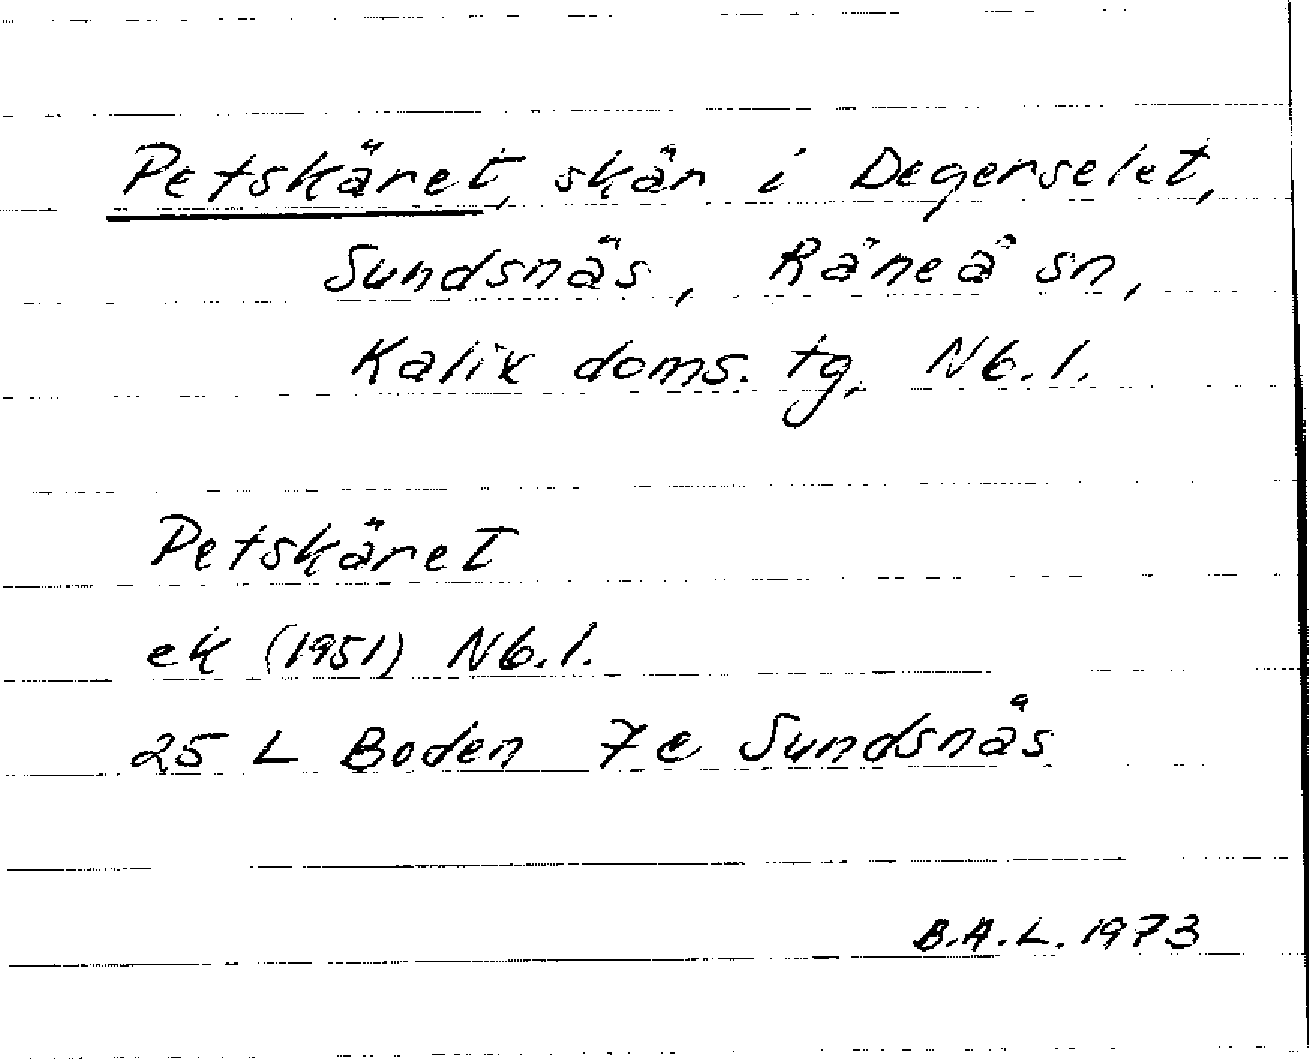 Petskäret, skär i Degerselet,
Sundsnäs, Råneå sn,
Kalix doms. tg, Nb.l.
Petskäret
ek (1951) Nb.l.
25 L Boden 7e Sundsnäs
B.A.L. 1973